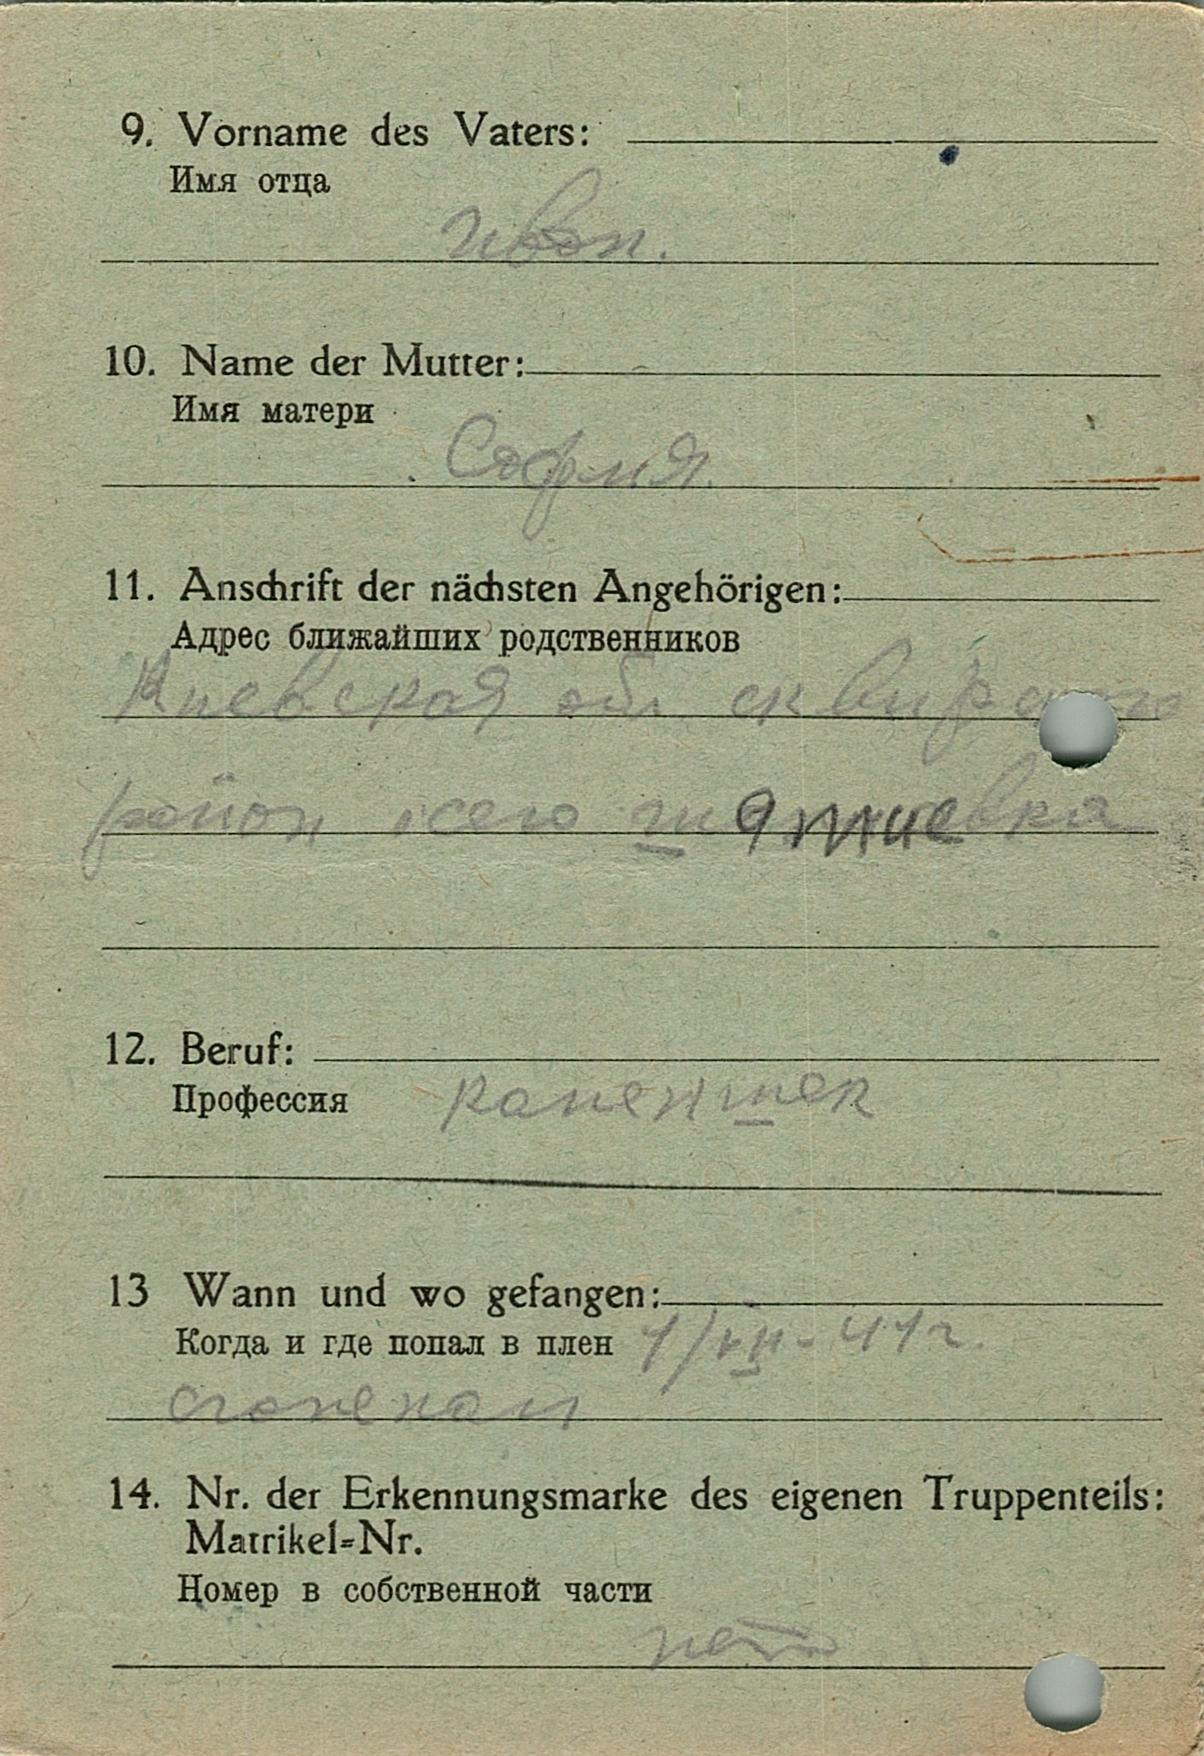 9. Vorname des Vaters:
Имя отца
Иван.
10. Name der Mutter:
Имя матери
София.
11. Anschrift der nächsten Angehörigen:
Адрес ближайших родственников
Киевская обл.
район село
12. Beruf:
Профессия
13 Wann und wo gefangen:
Когда и где попал в плен 1/VII-41г.
14. Nr. der Erkennungsmarke des eigenen Truppenteils:
Matrikel=Nr.
Номер в собственной части
нет